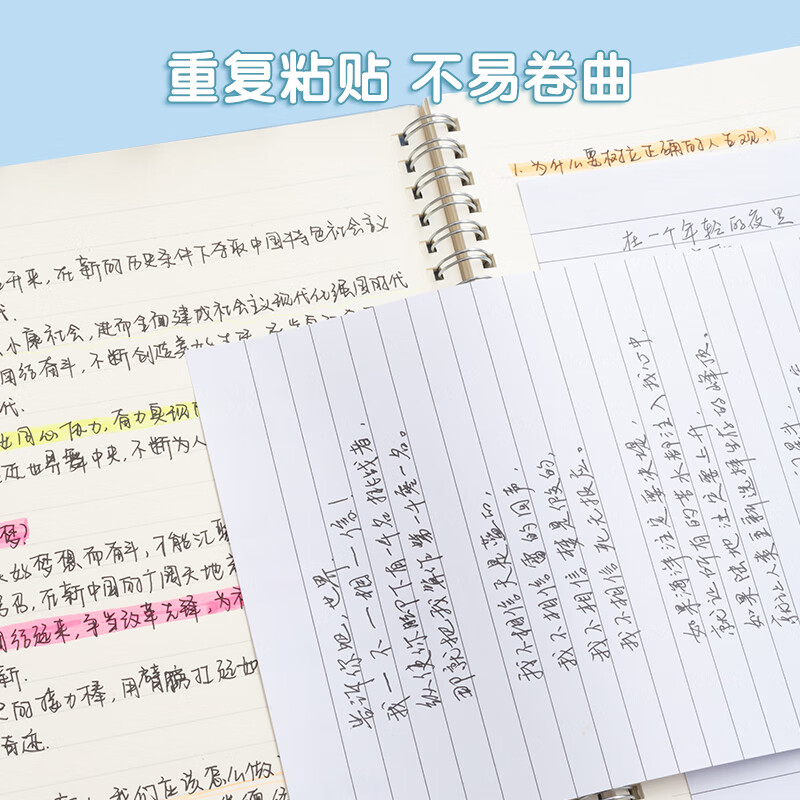 重复粘贴 不易卷曲
1.为什么要树立正确的人生观?
在一个年轻的夜里
开来,在新的历史条件下夺取中国特色社会主义
代.
小康社会,进而全面建成社会主义现代化强国的时代
团结奋斗,不断创造美好生活
代.
同心协力,奋力实现
近世界舞中央,不断为人
梦想而奋斗,才能汇聚
召,在新中国的广阔天地
起来,争当改革先锋,为
新.
的接力棒,用臂膀扛起如
奇迹.
我们应该怎么做
告诉你吧,世界.
我一不一相一信!
纵使你脚下有一千名挑战者,
那就把我算作第一千零一名。
我不相信天是蓝的,
我不相信雷的回声,
我不相信梦是假的,
我不相信死无报应。
如果海洋注定要决堤,
就让所有的苦水都注入我心中.
如果陆地注定要上升,
就让人类重新选择生存的峰顶。